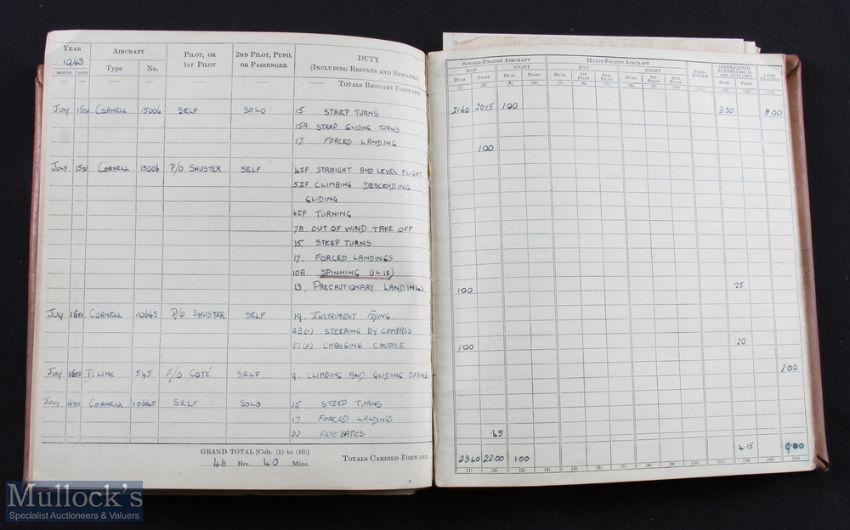 YEAR AIRCRAFT PILOT, OR 1ST PILOT 2ND PILOT, PUPIL OR PASSENGER DUTY (INCLUDING RESULTS AND REMARKS)
1943
MONTH DATE Type No.
TOTALS BROUGHT FORWARD
JULY 15TH CORNELL 15006 SELF SOLO 15 STEEP TURNS
15A STEEP GLIDING TURNS
17 FORCED LANDING
JULY 15TH CORNELL 15006 P/O SHUSTER SELF 4IF STRAIGHT AND LEVEL FLIGHT
5IF CLIMBING DESCENDING
GLIDING
6IF TURNING
7A. OUT OF WIND TAKE OFF
15 STEEP TURNS
17. FORCED LANDINGS
10A. SPINNING
13. PRECAUTIONARY LANDINGS
JULY 16TH CORNELL 10643 P/O SHUSTER SELF 19. INSTRUMENT FLYING
23(1) STEERING BY COMPASS
CHANGING COURSE
JULY 16TH D.LINK 545 F/O COTÉ SELF 9. CLIMBING AND GLIDING TURNS
JULY 16TH CORNELL 10640 SELF SOLO 15 STEEP TURNS
17 FORCED LANDINGS
22 AEROBATICS
GRAND TOTAL [Cols. (1) to (10)]
48 Hrs. 40 Mins.
TOTALS CARRIED FORWARD
SINGLE-ENGINE AIRCRAFT MULTI-ENGINE AIRCRAFT
DAY NIGHT DAY NIGHT
DUAL PILOT DUAL PILOT DUAL 1ST PILOT 2ND PILOT DUAL 1ST PILOT 2ND PILOT DUAL PILOT
(1) (2) (3) (4) (5) (6) (7) (8) (9) (10) (11) (12) (13) (14)
2140 2015 100 330 8.00
100
100 25
100 20
1.00
45
2340 2200 100 415 9.00
(1) (2) (3) (4) (5) (6) (7) (8) (9) (10) (11) (12) (13) (14)
Mullock's
Specialist Auctioneers & Valuers